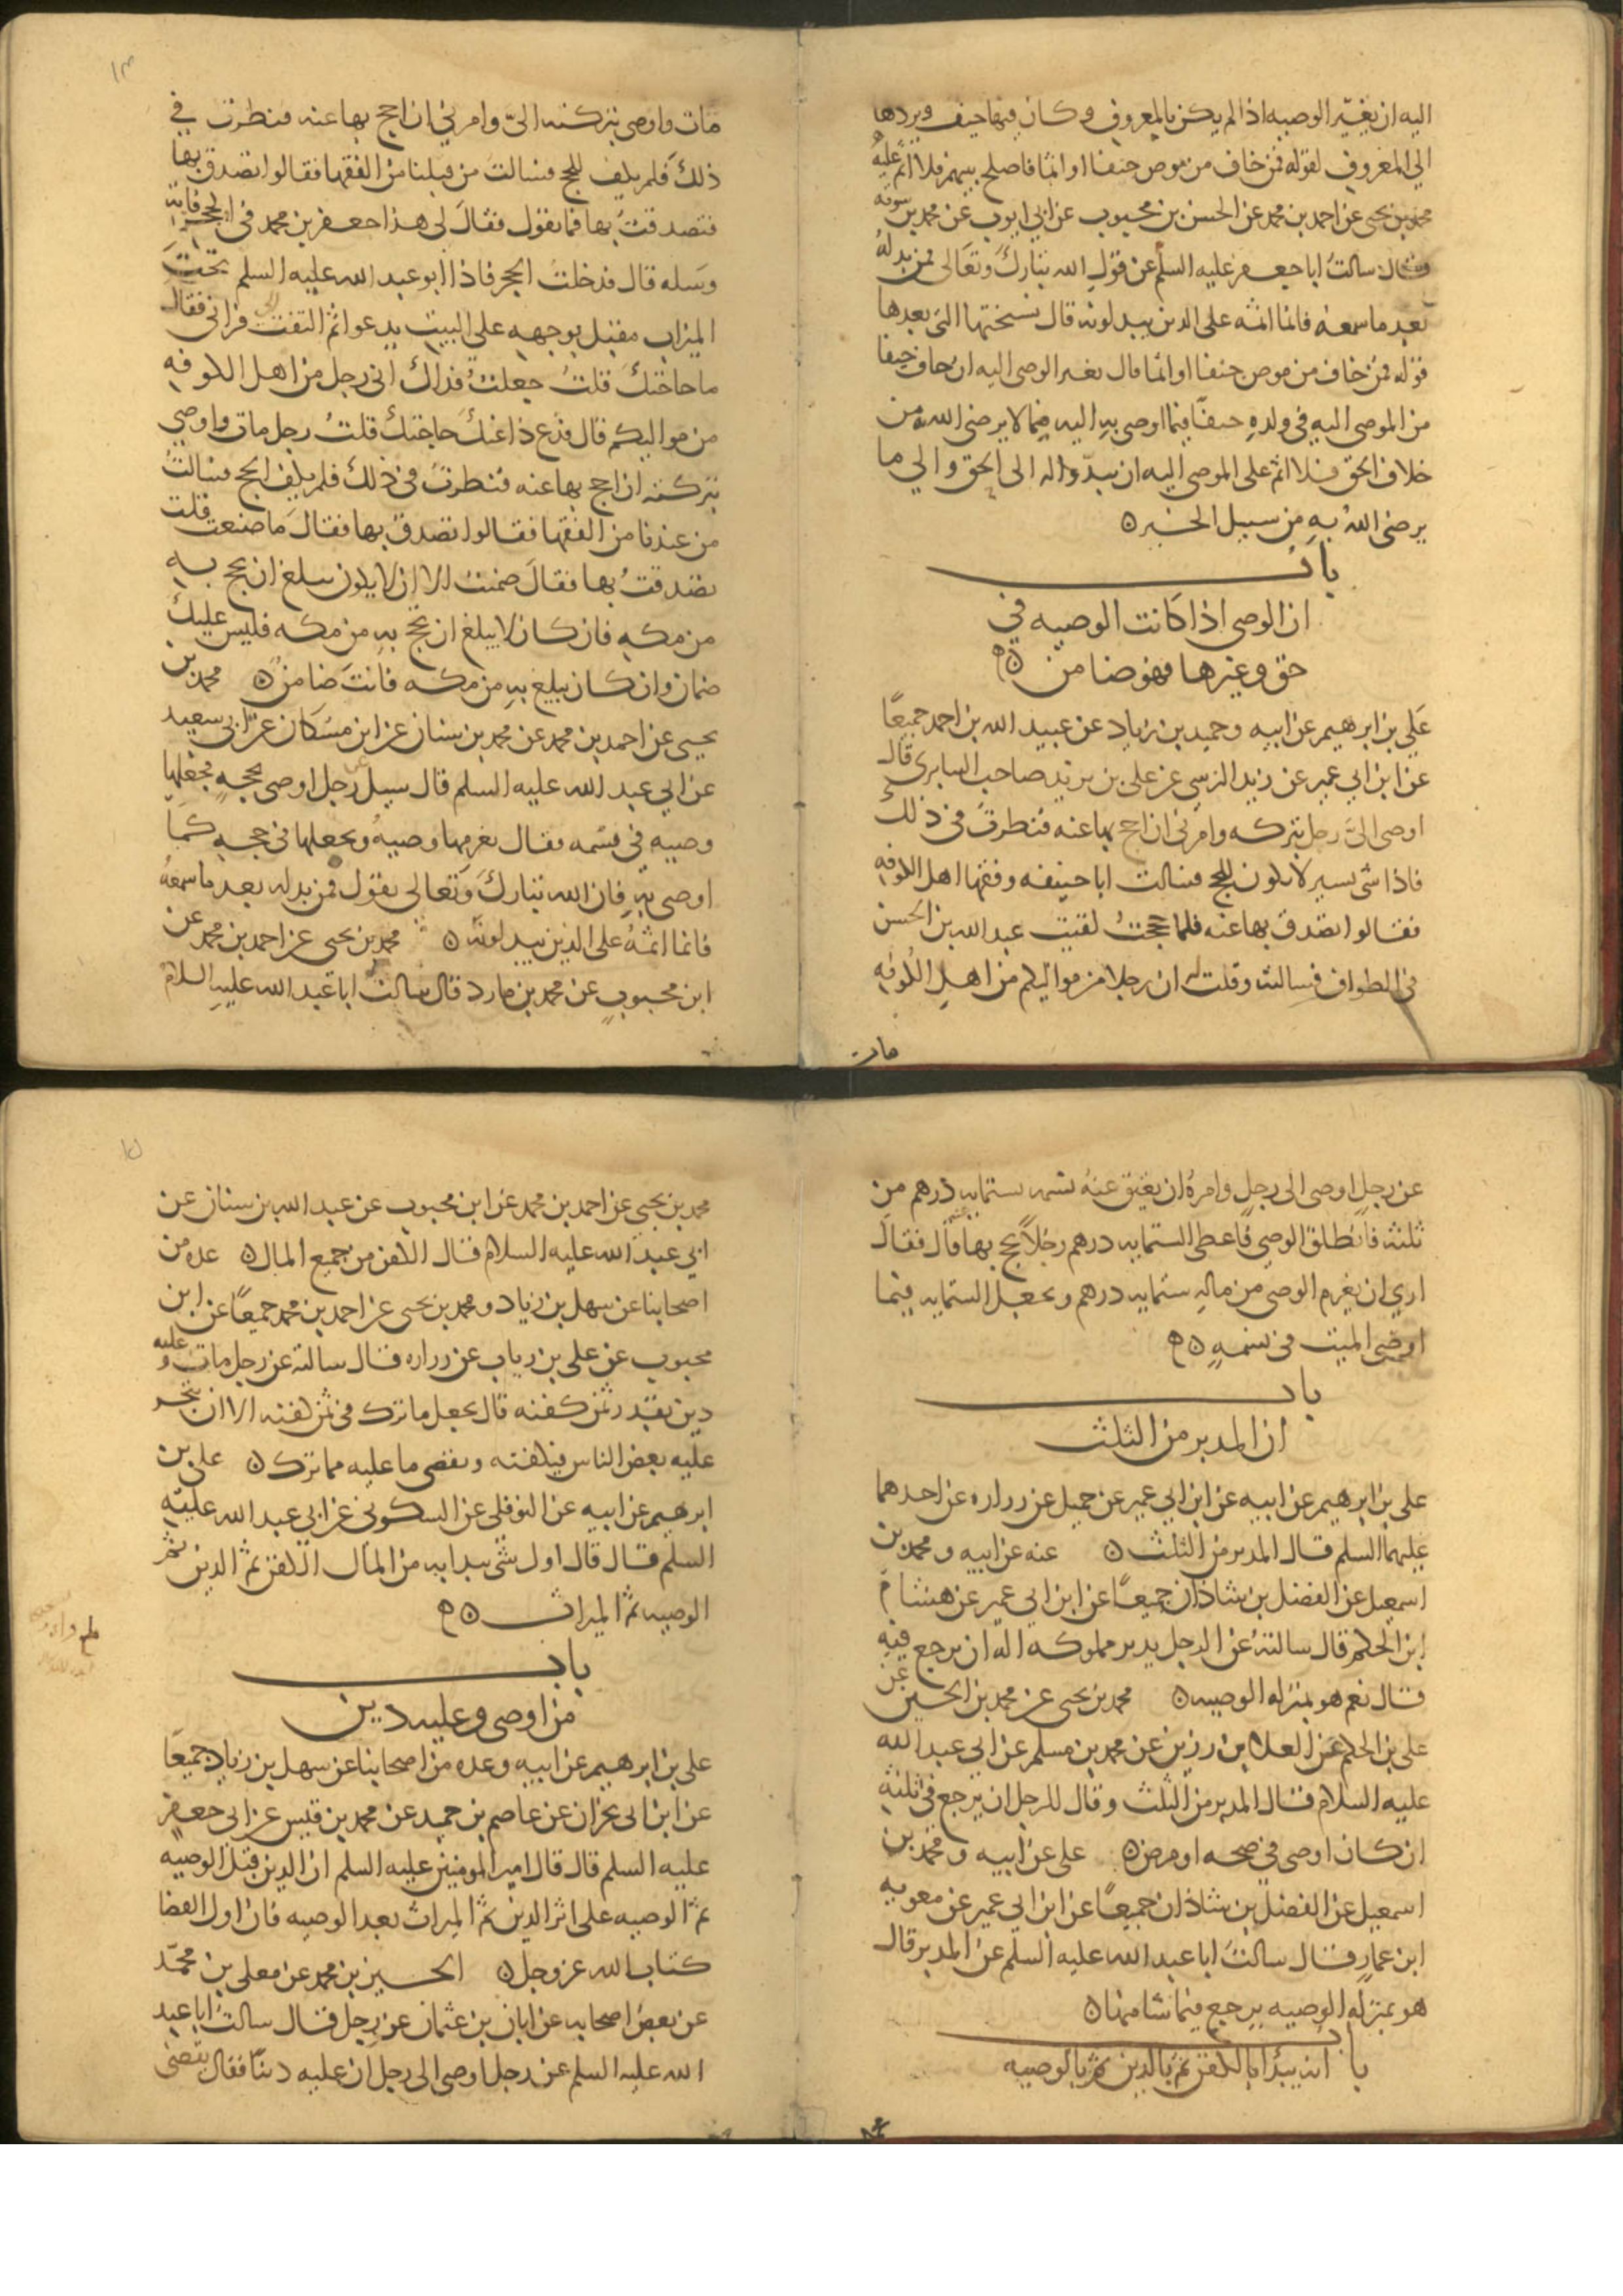 اليه ان يغيّر الوصيه اذا لم يكن بالمعروف وكان فيها حيف ويردها
الي المعروف لقوله فمن خاف من موص جنفا او اثما فاصلح بينهم فلا اثم عليه
محمد بن يحيى عن احمد بن محمد عن الحسن بن محبوب عن ابي ايوب عن محمد بن سوقه
قال سالت ابا جعفر عليه السلم عن قول الله تبارك وتعالى فمن بدله
بعد ما سمعه فانما اثمه على الدين يبدلونه قال نسختها التى بعدها
قوله فمن خاف من موص جنفا او اثما قال يعنى الموصى اليه ان خاف جنفا
من الموصى اليه فى ولده جنفا فيما اوصى به اليه فيما لا يرضى الله من
خلاف الحق فلا اثم على الموصى اليه ان يبدّله الى الحق والي ما
يرضى الله به من سبيل الخير ٥
باب
ان الوصى اذا كانت الوصيه في
حق وغيرها فهو ضامن ٥
علي بن ابرهيم عن ابيه وحميد بن زياد عن عبيد الله بن احمد جميعًا
عن ابن ابي عمير عن زيد النرسى عن على بن مرثد صاحب السابرى قال
اوصى الىّ رجل بتركه وامرنى ان احج بها عنه فنظرت فى ذلك
فاذا شى يسير لا يكون للحج فسالت ابا حنيفه وفقها اهل الكوفه
فقالوا تصدق بها عنه فلما حججتُ لقيت عبد الله بن الحسن
فى الطواف فسالته وقلت له ان رجلا من مواليكم من اهل الكوفه
مات
١٣
مات واوصى بتركته الىّ وامرني ان احج بها عنه فنظرت في
ذلك فلم يكف للحج فسالت من قبلنا من الفقها فقالوا تصدق بها
فتصدقتُ بها فما تقول فقال لى هذا جعفر بن محمد فى الحجر فاته
وسله قال فدخلت الحجر فاذا ابو عبد الله عليه السلم تحت
الميزاب مقبل بوجهه على البيت يدعوا ثم التفت الى فرانى فقال
ما حاجتك قلتُ جعلتُ فداك انى رجل من اهل الكوفه
من مواليكم قال فدع ذا عنك حاجتك قلتُ رجل مات واوصي
بتركته ان احج بها عنه فنظرتُ فى ذلك فلم يكف الحج فسالت
من عندنا من الفقها فقالوا تصدق بها فقال ما صنعت قلت
تصدقتُ بها فقال ضمنت الا ان لا يكون يبلغ ان يحج به
من مكه فان كان لا يبلغ ان يحج به من مكه فليس عليك
ضمان وان كان يبلغ به من مكه فانت ضامن ٥ محمد بن
يحيى عن احمد بن محمد عن محمد بن سنان عن ابن مسكان عن ابى سعيد
عن ابي عبد الله عليه السلم قال سيل عن رجل اوصى بحجه فجعلها
وصيه فى نسمه فقال يغرمها وصيه ويجعلها فى حجه كما
اوصى به فان الله تبارك وتعالى يقول فمن بدله بعد ما سمعه
فانما اثمه على الدين يبدلونه ٥ محمد بن يحيى عن احمد بن محمد عن
ابن محبوب عن محمد بن مارد قال سالت ابا عبد الله عليه السلام
عن رجل اوصى الى رجل وامره ان يعتق عنه نسمه بستمايه درهم من
ثلثه فانطلق الوصي فاعطى الستمايه درهم رجلاً يحج بها عنه قال فقال
ارى ان يغرم الوصى من ماله ستمايه درهم ويجعل الستمايه فيما
اوصى الميت فى نسمه ٥
باب
ان المدبر من الثلث
على بن ابرهيم عن ابيه عن ابن ابي عمير عن جميل عن زراره عن احدهما
عليهما السلم قال المدبر من الثلث ٥ عنه عن ابيه ومحمد بن
اسمعيل عن الفضل بن شاذان جميعًا عن ابن ابي عمير عن هشام
ابن الحكم قال سالته عن الرجل يدبر مملوكه اله ان يرجع فيه
قال نعم هو بمنزله الوصيه ٥ محمد بن يحيى عن محمد بن الحسين عن
على بن الحكم عن العلا بن رزين عن محمد بن مسلم عن ابي عبد الله
عليه السلام قال المدبر من الثلث وقال للرجل ان يرجع في ثلثه
ان كان اوصى في صحه او مرض ٥ على عن ابيه ومحمد بن
اسمعيل عن الفضل بن شاذان جميعًا عن ابن ابي عمير عن معويه
ابن عمار قال سالت ابا عبد الله عليه السلم عن المدبر قال
هو بمنزله الوصيه يرجع فيما شا منها ٥
باب انه يبدا بالكفن ثم بالدين ثم بالوصيه
محمد بن يحيى عن احمد بن محمد عن ابن محبوب عن عبد الله بن سنان عن
ابي عبد الله عليه السلام قال الكفن من جميع المال ٥ عده من
اصحابنا عن سهل بن زياد ومحمد بن يحيى عن احمد بن محمد جميعًا عن ابن
محبوب عن على بن رياب عن زراره قال سالته عن رجل مات وعليه
دين بقدر ثمن كفنه قال يجعل ما ترك فى ثمن كفنه الا ان يتجر
عليه بعض الناس فيكفنه ويقضى ما عليه مما ترك ٥ على بن
ابرهيم عن ابيه عن النوفلى عن السكونى عن ابي عبد الله عليه
السلم قال قال اول شى يبدا به من المال الكفن ثم الدين ثم
الوصيه ثم الميراث ٥
باب
من اوصى وعليه دين
على بن ابرهيم عن ابيه وعده من اصحابنا عن سهل بن زياد جميعًا
عن ابن ابى نجران عن عاصم بن حميد عن محمد بن قيس عن ابى جعفر
عليه السلم قال قال امير المومنين عليه السلم ان الدين قبل الوصيه
ثم الوصيه على اثر الدين ثم الميراث بعد الوصيه فان اول القضا
كتاب الله عز وجل ٥ الحسين بن محمد عن معلى بن محمّد
عن بعض اصحابه عن ابان بن عثمان عن رجل قال سالت ابا عبد
الله عليه السلم عن رجل اوصى الى رجل ان عليه دينًا فقال يقضى